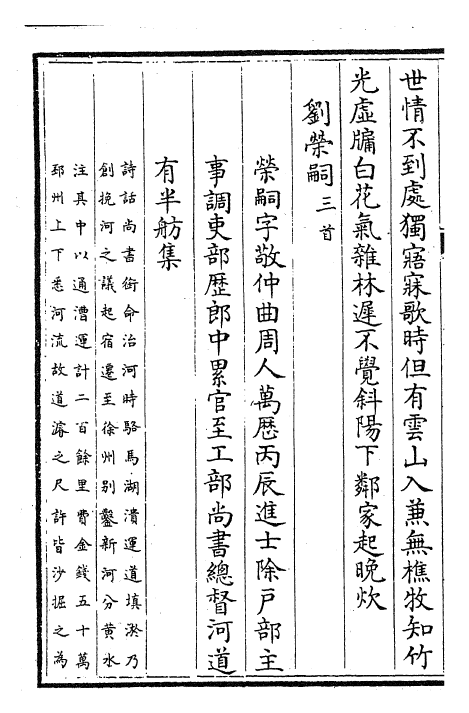 世情不到處獨寤寐歌時但有雲山入蒹無樵牧知竹
光虛牖白花氣雜林遲不覺斜陽下鄰家起晚炊
劉榮嗣三首
榮嗣字敬仲曲周人萬厯丙辰進士除戸部主
事調吏部歴郎中累官至工部尚書總督河道
有半舫集
詩話尚書銜命治河時駱馬湖潰運道填淤乃
創挽河之議起宿遷至徐州别鑿新河分黄水
注其中以通漕運計二百餘里費金錢五十萬
邳州上下悉河流故道濬之尺許皆沙掘之為